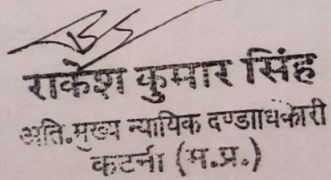 राकेश कुमार सिंह
अति.मुख्य न्यायिक दण्डाधिकारी
कटनी (म.प्र.)